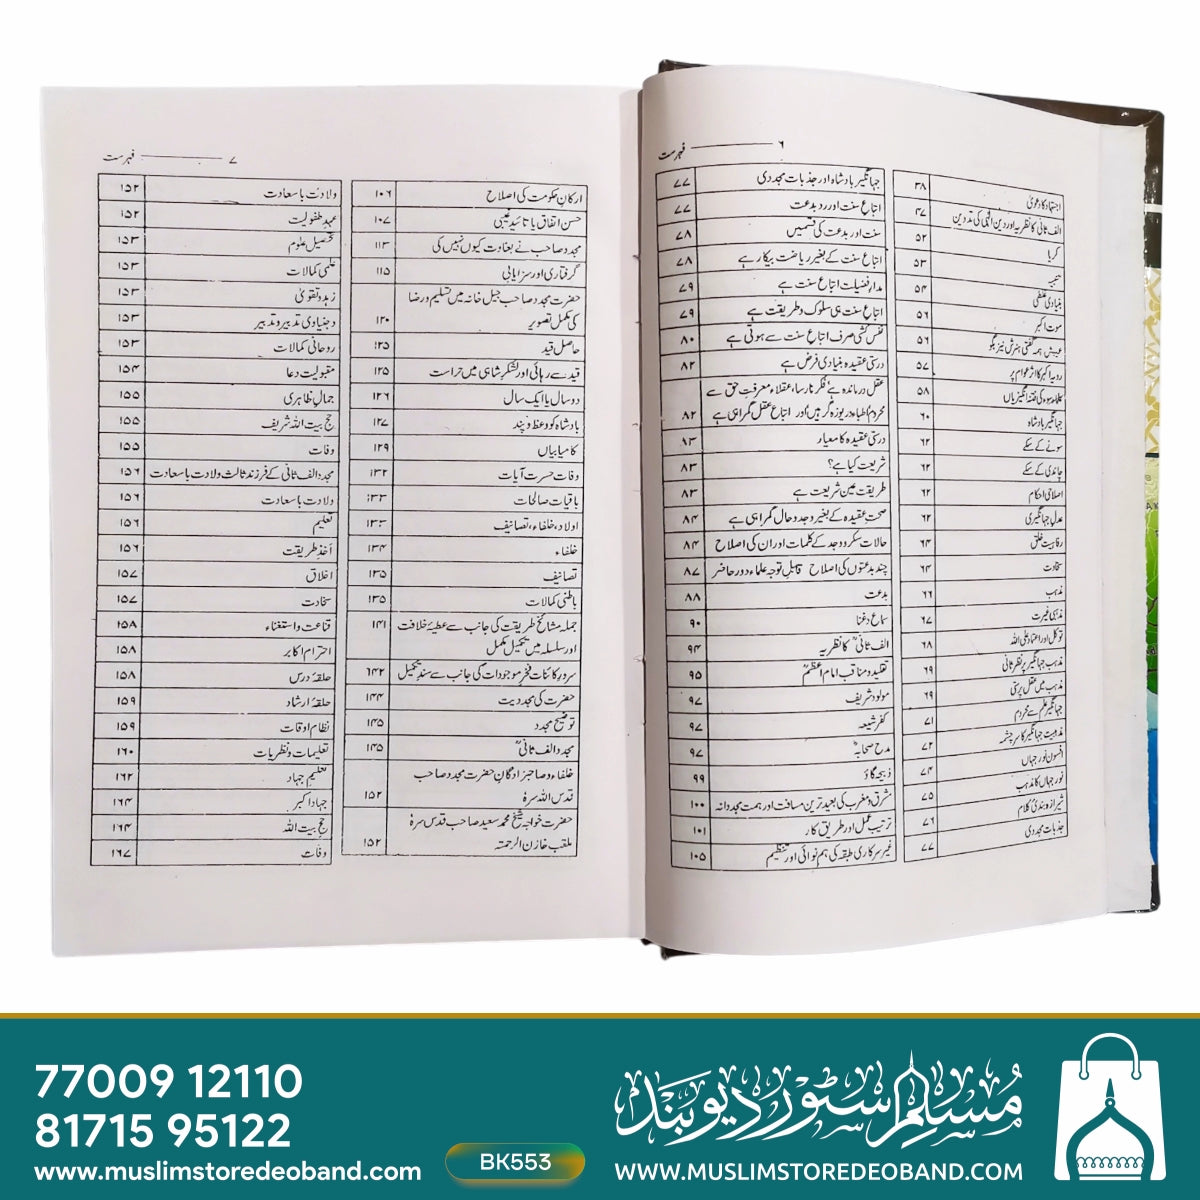 ۶ ——— فہرست
اجتہاد کا دعویٰ ۳۸
الف ثانی کا نظریہ اور دین الٰہی کی تدوین ۴۷
گریا ۵۲
نتیجہ ۵۳
بنیادی غلطی ۵۴
موت اکبر ۵۶
عیبش ہمہ گفتی ہنرش نیز بگو ۵۶
رویہ اکبر کا اثر عوام پر ۵۷
علماء سوء کی فتنہ انگیزیاں ۵۸
جہانگیر بادشاہ ۶۰
سونے کے سکے ۶۲
چاندی کے سکے ۶۲
اصلاحی احکام ۶۲
عدل جہانگیری ۶۲
رفاہیت خلق ۶۴
سخاوت ۶۴
مذہب ۶۶
مذہبی غیرت ۶۷
توکل اور اعتماد علی اللہ ۶۸
مذہب جہانگیر پر نظر ثانی ۶۹
مذہب میں عقل پرستی ۶۹
جہانگیر علم سے محروم ۷۱
مذہبیت جہانگیر کا سر چشمہ ۷۲
افسون نور جہاں ۷۴
نور جہاں کا مذہب ۷۵
شیرازہ بندیٔ کلام ۷۶
جذبات مجددی ۷۷
جہانگیر بادشاہ اور جذبات مجددی ۷۷
اتباع سنت اور رد بدعت ۷۷
سنت اور بدعت کی قسمیں ۷۸
اتباع سنت کے بغیر ریاضت بیکار ہے ۷۸
مدار فضیلت اتباع سنت ہے ۷۹
اتباع سنت ہی سلوک و طریقت ہے ۷۹
نفس کشی صرف اتباع سنت سے ہوتی ہے ۸۰
درستی عقیدہ بنیادی فرض ہے ۸۲
عقل درماندہ ہے فکر نارسا، عقلاء معرفت حق سے
محروم اطباء دریوزہ گر ہیں اور اتباع عقل گمراہی ہے ۸۲
درستی عقیدہ کا معیار ۸۳
شریعت کیا ہے؟ ۸۳
طریقت عین شریعت ہے ۸۳
صحت عقیدہ کے بغیر وجد و حال گمراہی ہے ۸۴
حالات سکر و وجد کے کلمات اور ان کی اصلاح ۸۴
چند بدعتوں کی اصلاح قابل توجہ علماء دور حاضر ۸۷
بدعت ۸۸
سماع و غنا ۹۰
الف ثانیؒ کا نظریہ ۹۴
تقلید و مناقب امام اعظمؒ ۹۵
مولود شریف ۹۷
کفر شیعہ ۹۷
مدح صحابہؓ ۹۷
ذبیحہ گاؤ ۹۹
مشرق و مغرب کی بعید ترین مسافت اور ہمت مجددانہ ۱۰۰
ترتیب عمل اور طریق کار ۱۰۱
غیر سرکاری طبقہ کی ہم نوائی اور تنظیم ۱۰۵
۷ ——— فہرست
ارکان حکومت کی اصلاح ۱۰۶
حسن اتفاق یا تائید غیبی ۱۰۷
مجدد صاحب نے بغاوت کیوں نہیں کی ۱۱۳
گرفتاری اور سزایابی ۱۱۵
حضرت مجدد صاحب جیل خانہ میں تسلیم و رضا
کی مکمل تصویر ۱۲۰
حاصل قید ۱۲۵
قید سے رہائی اور لشکر شاہی میں حراست ۱۲۵
دو سال یا ایک سال ۱۲۶
بادشاہ کو وعظ و پند ۱۲۷
کامیابیاں ۱۲۹
وفات حسرت آیات ۱۳۲
باقیات صالحات ۱۳۳
اولاد، خلفاء، تصانیف ۱۳۳
خلفاء ۱۳۴
تصانیف ۱۳۵
باطنی کمالات ۱۳۵
جملہ مشائخ طریقت کی جانب سے عطیۂ خلافت ۱۴۱
اور سلسلہ میں تکمیل مکمل
سرور کائنات فخر موجودات کی جانب سے سند تکمیل ۱۴۲
حضرت کی مجددیت ۱۴۴
توضیح مجدد ۱۴۵
مجدد الف ثانیؒ ۱۴۵
خلفاء و صاحبزادگان حضرت مجدد صاحب
قدس اللہ سرہٗ ۱۵۲
حضرت خواجہ شیخ محمد سعید صاحب قدس سرہٗ
ملقب خازن الرحمتہ ۱۵۲
ولادت با سعادت ۱۵۲
عہد طفولیت ۱۵۲
تحصیل علوم ۱۵۳
علمی کمالات ۱۵۳
زہد و تقویٰ ۱۵۳
دنیاوی تدبیر و تدبر ۱۵۳
روحانی کمالات ۱۵۳
مقبولیت دعا ۱۵۴
جمال ظاہری ۱۵۵
حج بیت اللہ شریف ۱۵۵
وفات ۱۵۵
مجدد الف ثانی کے فرزند ثالث ولادت با سعادت ۱۵۶
ولادت با سعادت ۱۵۶
تعلیم ۱۵۶
اخذ طریقت ۱۵۶
اخلاق ۱۵۷
سخاوت ۱۵۷
قناعت و استغناء ۱۵۸
احترام اکابر ۱۵۸
حلقۂ درس ۱۵۸
حلقۂ ارشاد ۱۵۹
نظام اوقات ۱۵۹
تعلیمات و نظریات ۱۶۰
تعلیم جہاد ۱۶۲
جہاد اکبر ۱۶۴
حج بیت اللہ ۱۶۴
وفات ۱۶۷
77009 12110
81715 95122
www.muslimstoredeoband.com
BK553
مسلم سٹور دیوبند
WWW.MUSLIMSTOREDEOBAND.COM